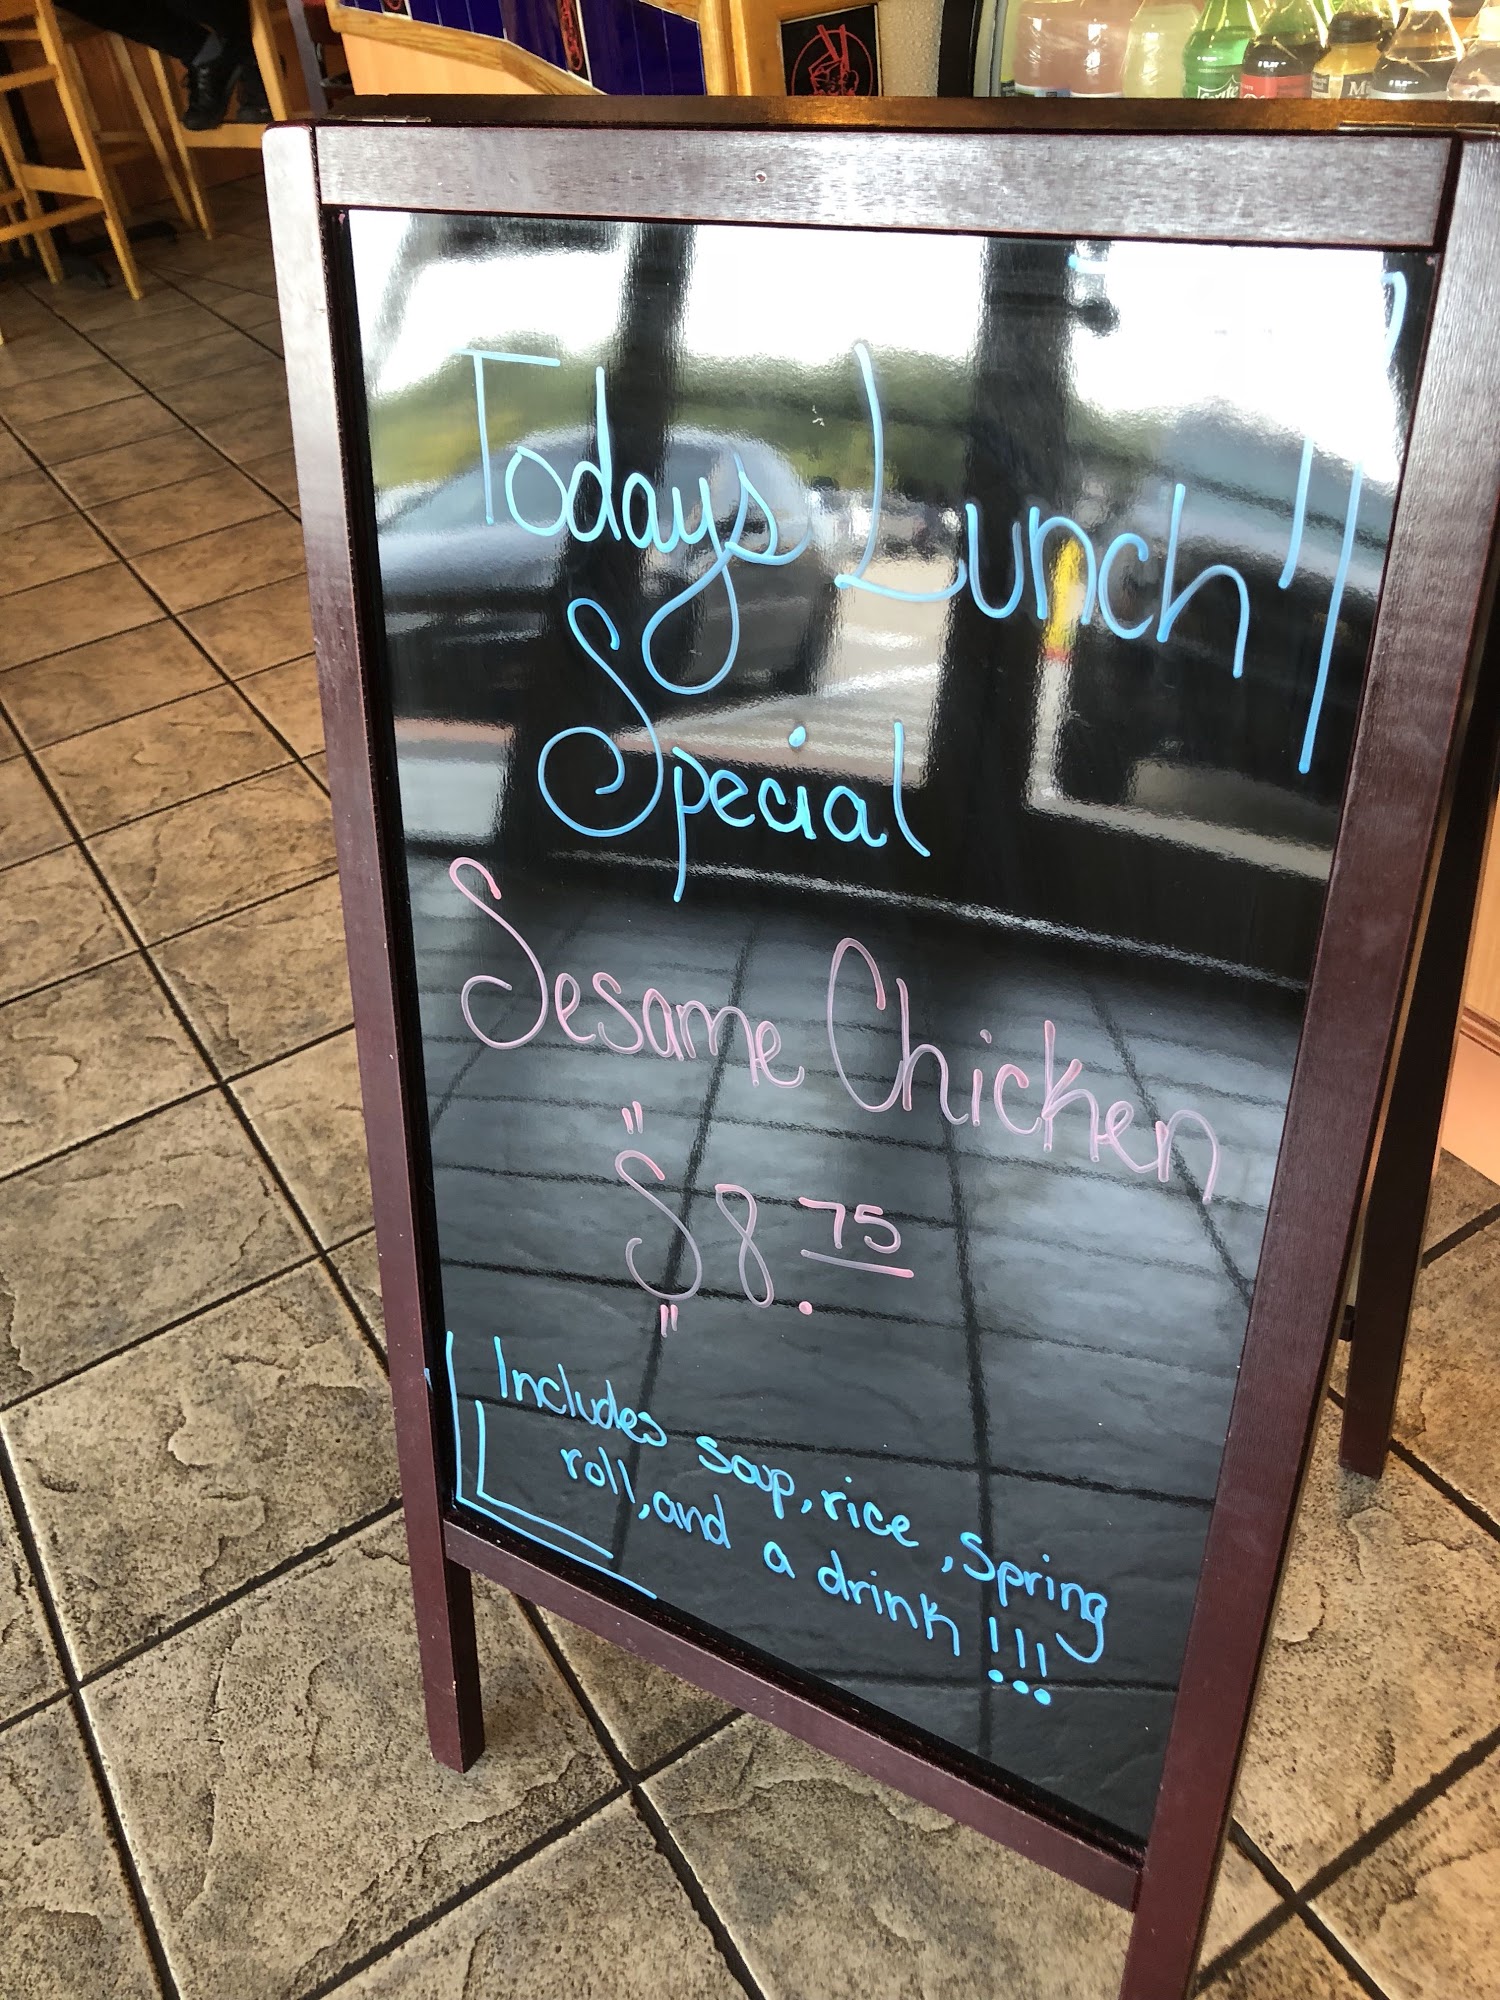 Todays Lunch
Special
Sesame Chicken
"
$8.75
"
Includes soup, rice, spring
roll, and a drink!!!